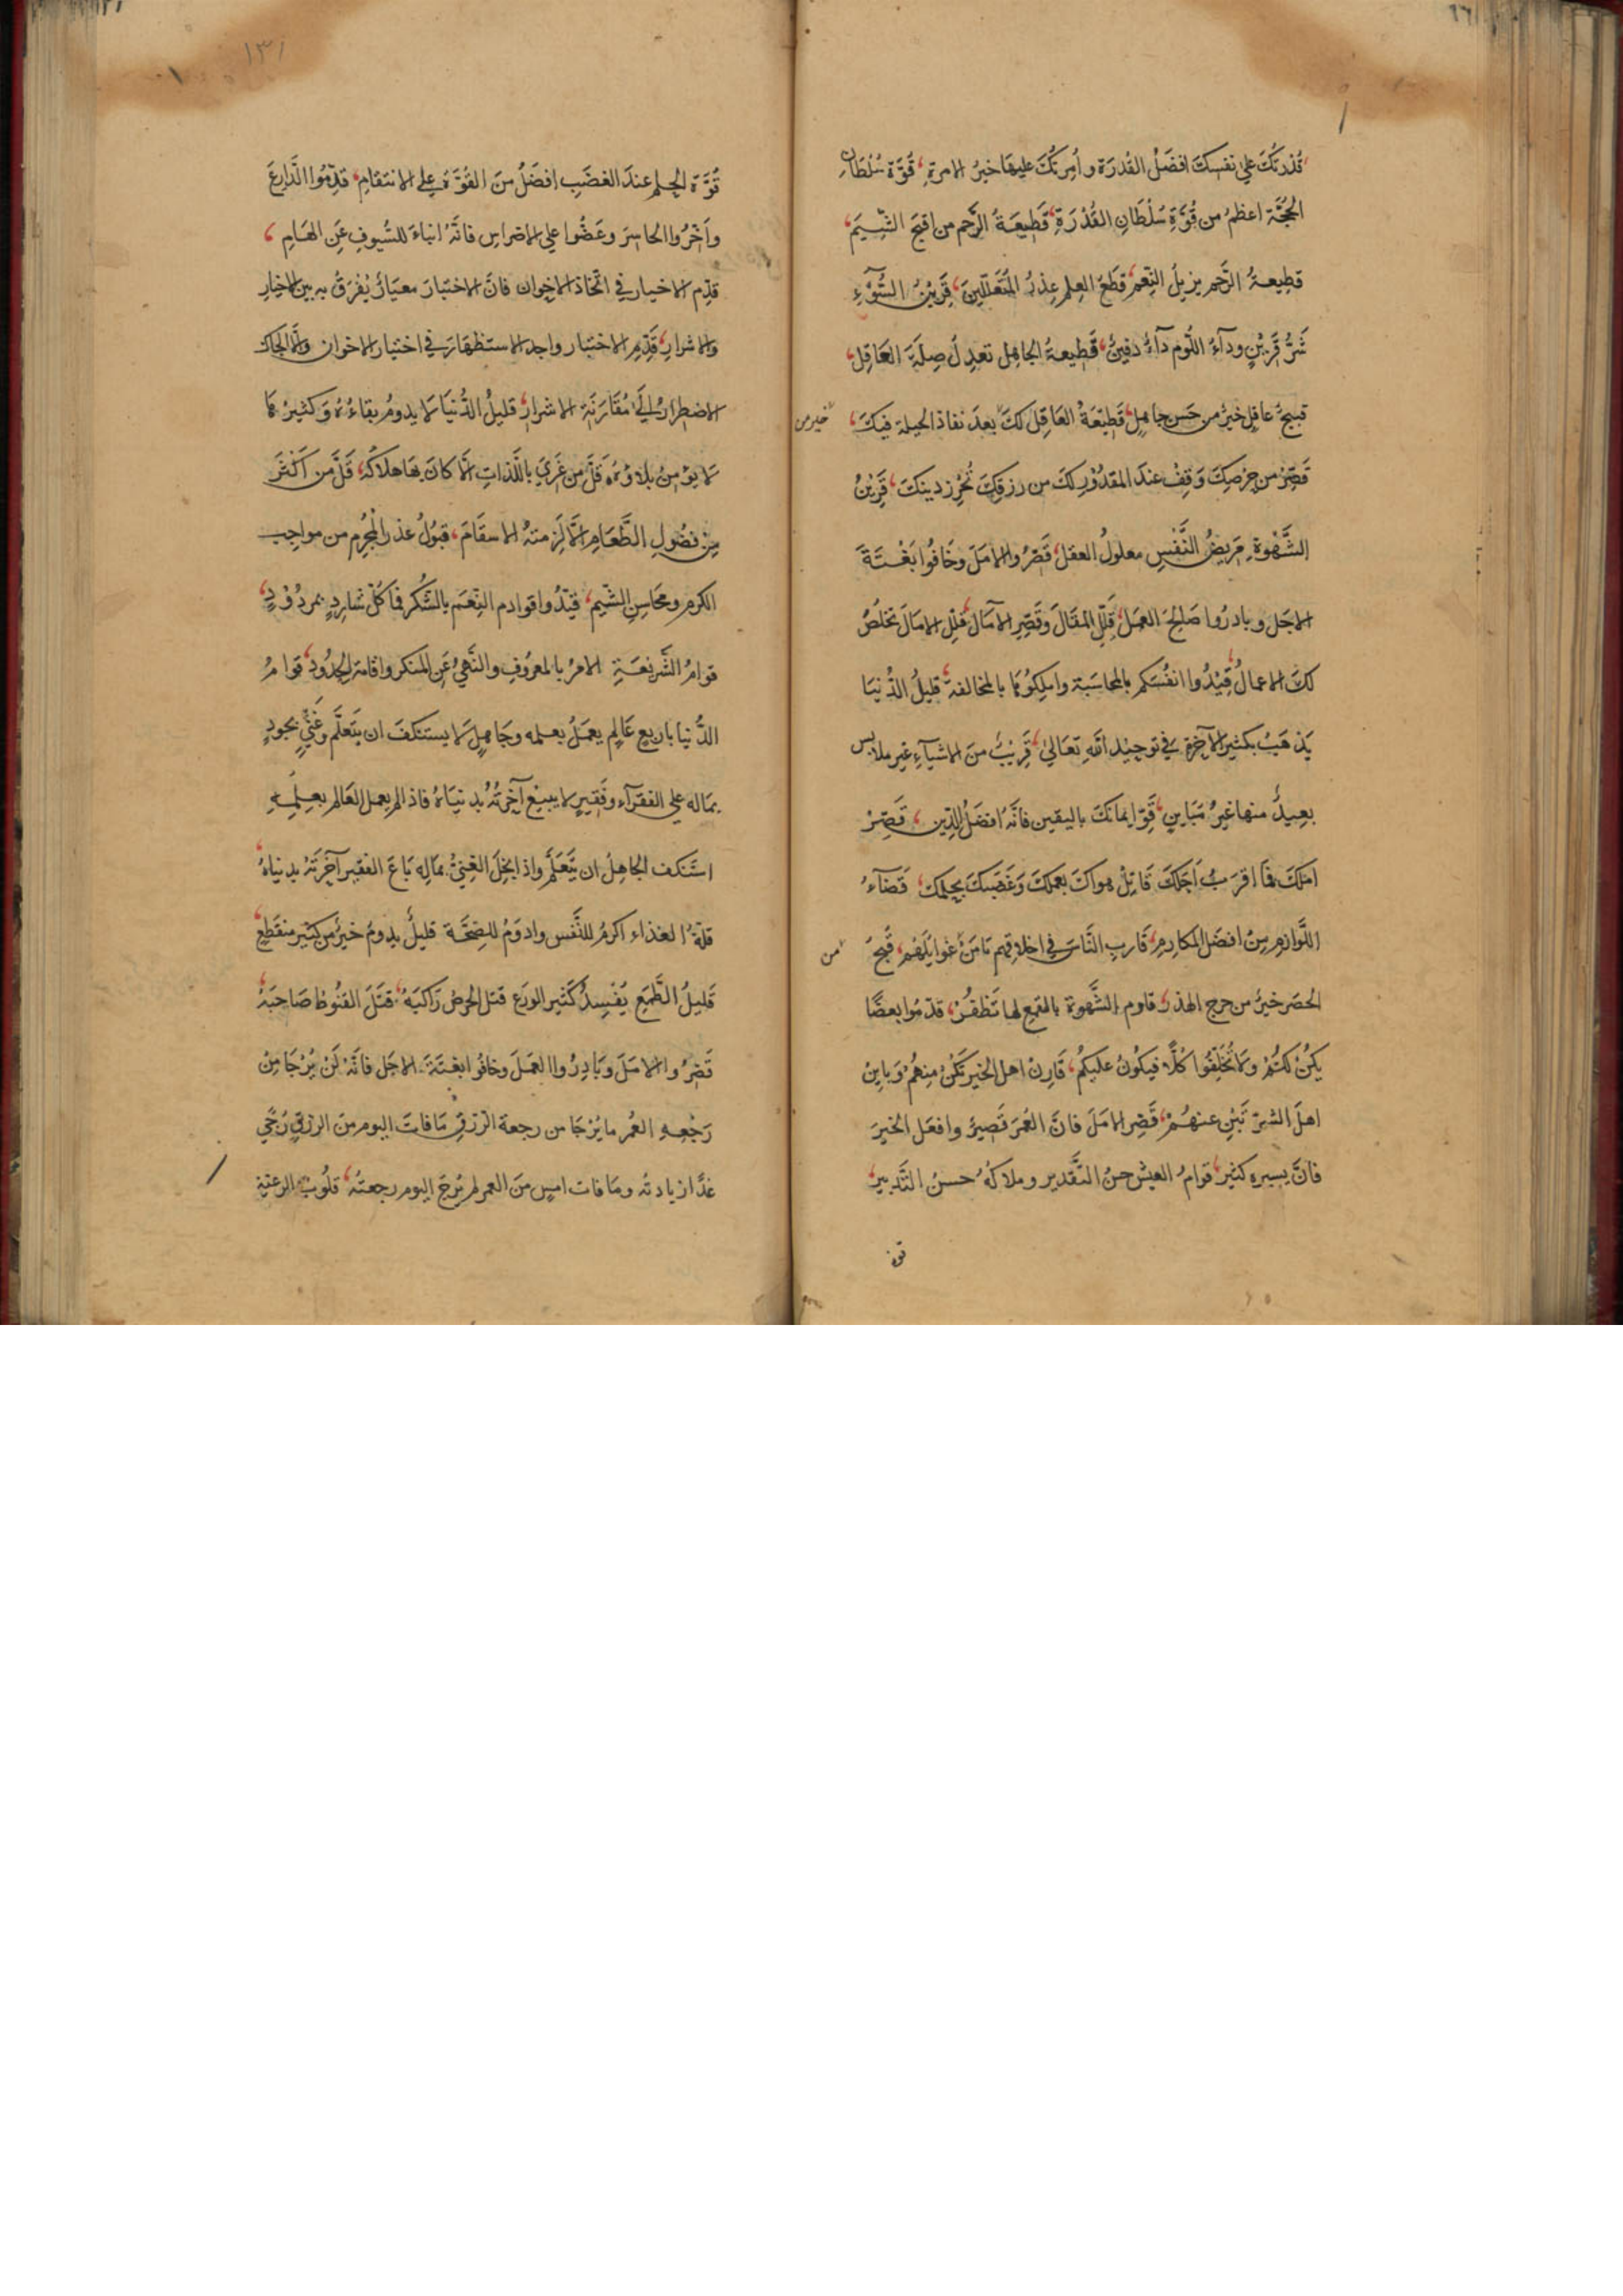 قُدْرَتُكَ عَلى نفسِكَ افضَلُ القُدرَة وامرَتُكَ عليهَا خيرُ الامرة، قُوَّة سُلطَانِ
الحُجَّة اعظمُ من قُوَّةِ سُلْطَانِ القُدْرَةِ، قَطِيعَةُ الرَّحم من اقبَح الشِّيَم،
قطِيعةُ الرَّحم يزيلُ النِّعم، قطَعَ العِلم عِذرُ المُتَعَلِّلِينَ، قَرِيْنُ السُّوْءِ
شَرُّ قَرِيْنٍ ودآءُ اللَّوم دآءٌ دفِينٌ، قَطِيعةُ الجاهِل تعدِلُ صِلَةَ العَاقِل،
قبيحُ عاقِلٍ خيرٌ من حَسَن جاهِلٍ، قَطِيْعَةُ العَاقِل لكَ بعدَ نفاذ الحيلة فيكَ،
خيرمن
قَصِّرْ من حِرْصِكَ وَقِفْ عندَ المقدُوْرِ لكَ من رزقِكَ تُحرِز دينَكَ، قَرِيْنُ
الشَّهْوَةِ مَرِيضُ النَّفسِ معلولُ العقل، قَصِّرُوا الامَلَ وخَافُوا بَغْتَةَ
الاجَلِ وبادرُوا صَالِحَ العمَلِ، قَلِّلِ المقَالَ وَقَصِّرِ الآمَالَ، قلِّلِ الامَالَ تخلُصْ
لكَ الاعمالُ، قَيِّدُوا انفُسَكم بالمحاسَبة واملِكُوهَا بالمخالفة، قليلُ الدُّنيَا
يَذهَبُ بكثيرِ الآخِرَة في توحِيْدِ اللهِ تعَالىٰ، قَرِيْبٌ منَ الاشيَآءِ غير ملابس
بعِيدٌ منها غيرُ مُبَاينٍ، قَوِّ ايمانَكَ باليقين فانَّهُ افضَلُ الدِّين، قَصِّرْ
امَلَكَ فمَا اقرَبُ اَجَلكَ قَاتِلْ هواكَ بعملكَ وَغَضَبَكَ بحِلمكَ، قَضَآءُ
اللَّوازمِ مِنْ افضَل المكَارِمِ، قَاربِ النَّاسَ في اخلاقِهم تَامَنْ غوايلَهُم، قُبحُ
من
الحَصَر خيرٌ من حرج الهذر، قاوم الشَّهوة بالقمع لها تَظفُرْ، قدّمُوا بعضًا
يكُنْ لكُمْ ولَا تُخَلِّفُوا كُلًّا فيكُونُ عليكُم، قَارِنْ اهلَ الخَيرِ تَكُنْ مِنهُمْ وَباينْ
اهلَ الشرّ تَبِنْ عنهُمْ، قَصِّرِ الامَلَ فانَّ العُمرَ قَصِيرٌ وافعَلِ الخَيرَ
فانَّ يسيره كثير، قوامُ العيش حسنُ التَّقدير وملاكُهُ حسنُ التَّدبير،
قوة
١٣١
قُوَّة الحِلم عندَ الغضَبِ افضَلُ منَ القُوَّة على الانتقامِ، قدِّمُوا الدَّارِعَ
واَخِّرُوا الحاسِرَ وعَضُّوا علي الاضراسِ فانَّهُ انباءَ للسُّيوفِ عَنِ الهَامِ،
قدّم الاختبار في اتّخاذ الاخوان فانَّ الاختبَارَ معيَارٌ يُفرَقُ به بين الاخيار
والاشرار، قَدِّمِ الاختبار واجد الاستظهَارَ في اختيار الاخوان والّا الجاك
الاضطرارُ الى مُقَارَنَة الاشرار، قليلُ الدُّنيَا لا يدومُ بقاءُهُ وكثيرُهَا
لا يؤمن بلاؤُهُ، قَلَّ من غَرِيَ باللَّذاتِ الّا كانَ بهَا هلاكُهُ، قَلَّ من اكثَرَ
مِنْ فضُولِ الطَّعَامِ الَّا لَزِمتهُ الاسقَامَ، قبُولُ عذر المُجرِم من مواجِبِ
الكرم ومحَاسِنِ الشِّيم، قيِّدُوا قوادم النِّعَم بالشُّكر فما كُلّ شاردٍ بمردُوْدٍ،
قوامُ الشَّريعَةِ الامرُ بالمعرُوف والنَّهيُ عَنِ المنكر واقامة الحُدُوْدِ، قوامُ
الدُّنيا باربع عَالِمٍ يعمَلُ بعِلمه وجَاهلٍ لا يستنكفَ ان يتَعلَّم وغَنيٍّ يجُودُ
بمَاله على الفقرآء وفَقيرٍ لا يبيعُ آخِرَتَهُ بدنيَاهُ فاذا لم يعمل العَالِم بعِلْمِهِ
استَنكف الجاهِلُ ان يتَعَلَّم واذا بخِلَ الغنيّ بمَالِه بَاعَ الفقير آخِرَتَهُ بدنياهُ،
قلة الغذاء اكرمُ للنَّفس وادوَمُ للصِّحَّة قليلٌ يدومُ خيرٌ من كثير منقطِعٍ،
قَليلُ الطَّمَعِ يُفسِدُ كَثيرَ الورَع قتلَ الحِرصُ رَاكبَهُ، قتَلَ القنُوطُ صَاحِبَهُ،
قَصِّرُوا الامَلَ وبَادِرُوا العمَلَ وخافُوا بغتَةَ الاجَل فانَّهُ لَنْ يُرْجَا مِنْ
رَجْعِةِ العُمر مَا يُرْجَا من رجعة الرّزقِ مَا فاتَ اليوم منَ الرّزقِ رُجّي
غدًا زيادته ومَا فات امسِ منَ العمر لم يُرجَ اليوم رجعتُهُ، قلُوبُ الرعية